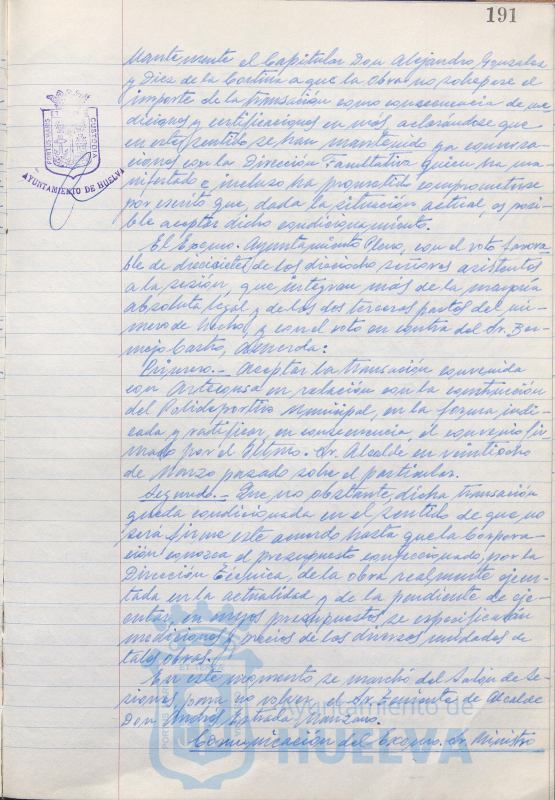 191
mantemente el Capitular Don Alejandro Gonzalez
y Diez de la Cortina a que la obra no sobrepase el
importe de la transación como consecuencia de me-
diciones y certificaciones en más, aclarándose que
en este sentido se han mantenido ya conversa-
ciones con la Dirección Facultativa quien ha ma-
nifestado e incluso ha prometido comprometerse
por escrito que, dada la situación actual, es posi-
ble aceptar dicho condicionamiento.
El Excmo. Ayuntamiento Pleno, con el voto favora-
ble de diecisiete de los dieciocho señores asistentes
a la sesión, que integran más de la mayoría
absoluta legal y de los dos terceras partes del nú-
mero de hecho, y con el voto en contra del Sr. Ber-
mejo Castro, acuerda:
Primero.- Aceptar la transación convenida
con Artecusa en relación con la construcción
del Polideportivo Municipal, en la forma indi-
cada y ratificar, en consecuencia, el convenio fir-
mado por el Iltmo. Sr. Alcalde en veintiocho
de Marzo pasado sobre el particular.
Segundo.- Que no obstante, dicha transación
queda condicionada en el sentido de que no
será firme este acuerdo hasta que la Corpora-
ción conozca el presupuesto confeccionado por la
Dirección Técnica, de la obra realmente ejecu-
tada en la actualidad y de la pendiente de eje-
cutar, en cuyos presupuestos se especificarán
mediciones y precios de las diversas unidades de
tales obras.
En este momento se marchó del Salón de Se-
siones, para no volver, el Sr. Teniente de Alcalde
Don Andres Estrada Manzano.
Comunicación del Excmo. Sr. Ministro
PORTUS MARIS
CUSTODIA
AYUNTAMIENTO DE HUELVA
Ayuntamiento de
HUELVA